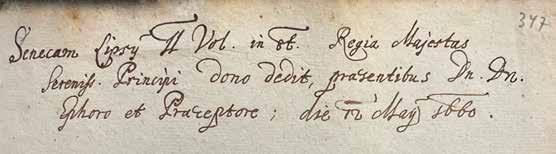 347
Senecam Lipsy II Vol. in 8t. Regia Majestas
Sereniss. Principi dono dedit, præsentibus Dn. Dn.
Ephoro et Præceptore; die 12 Maÿ 1660.